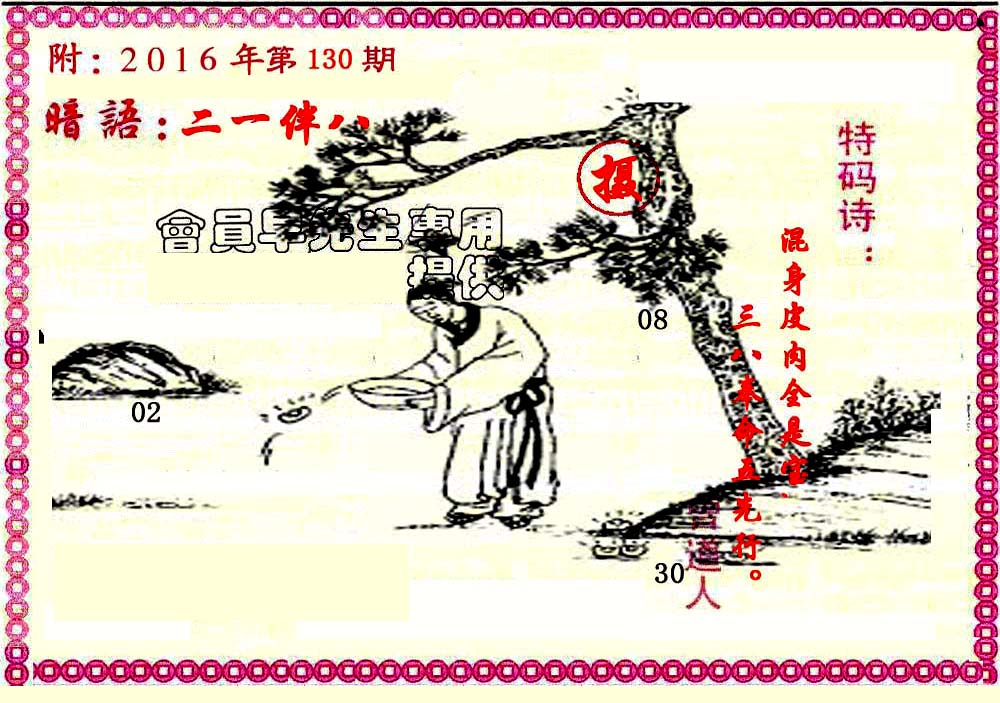 附：2016年第130期
暗語：二一伴八
摄
會員早先生專用
提供
特码诗：
混身皮肉全是宝
三八奉命五先行。
曾道人
08
02
30